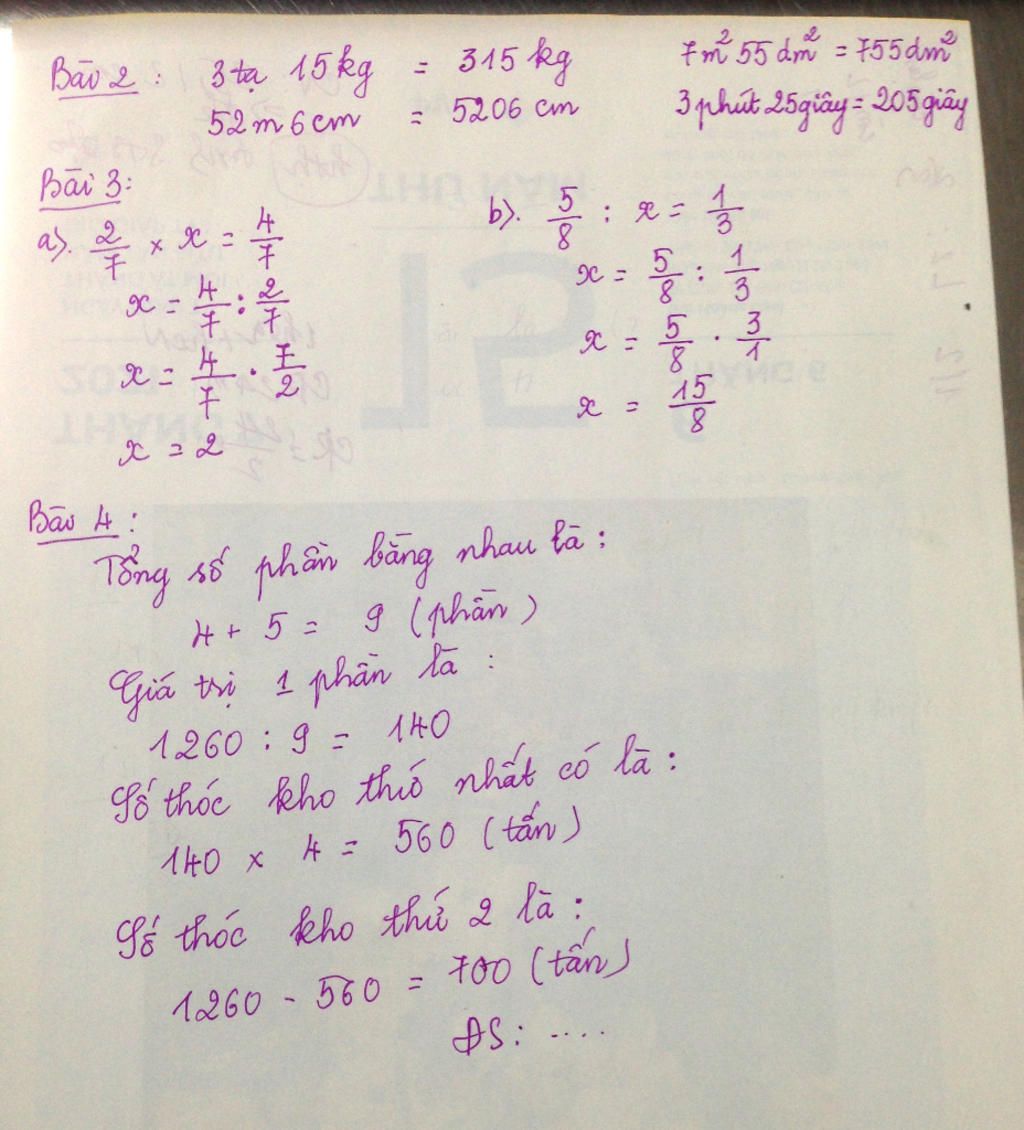 Bài 2 : 3 tạ 15 kg = 315 kg 7m² 55 dm² = 755 dm²
52 m 6 cm = 5206 cm 3 phút 25 giây = 205 giây
Bài 3 :
a). 2/7 × x = 4/7
x = 4/7 : 2/7
x = 4/7 . 7/2
x = 2
b). 5/8 : x = 1/3
x = 5/8 : 1/3
x = 5/8 . 3/1
x = 15/8
Bài 4 :
Tổng số phần bằng nhau là :
4 + 5 = 9 (phần)
Giá trị 1 phần là :
1260 : 9 = 140
Số thóc kho thứ nhất có là :
140 × 4 = 560 (tấn)
Số thóc kho thứ 2 là :
1260 - 560 = 700 (tấn)
ĐS : ....